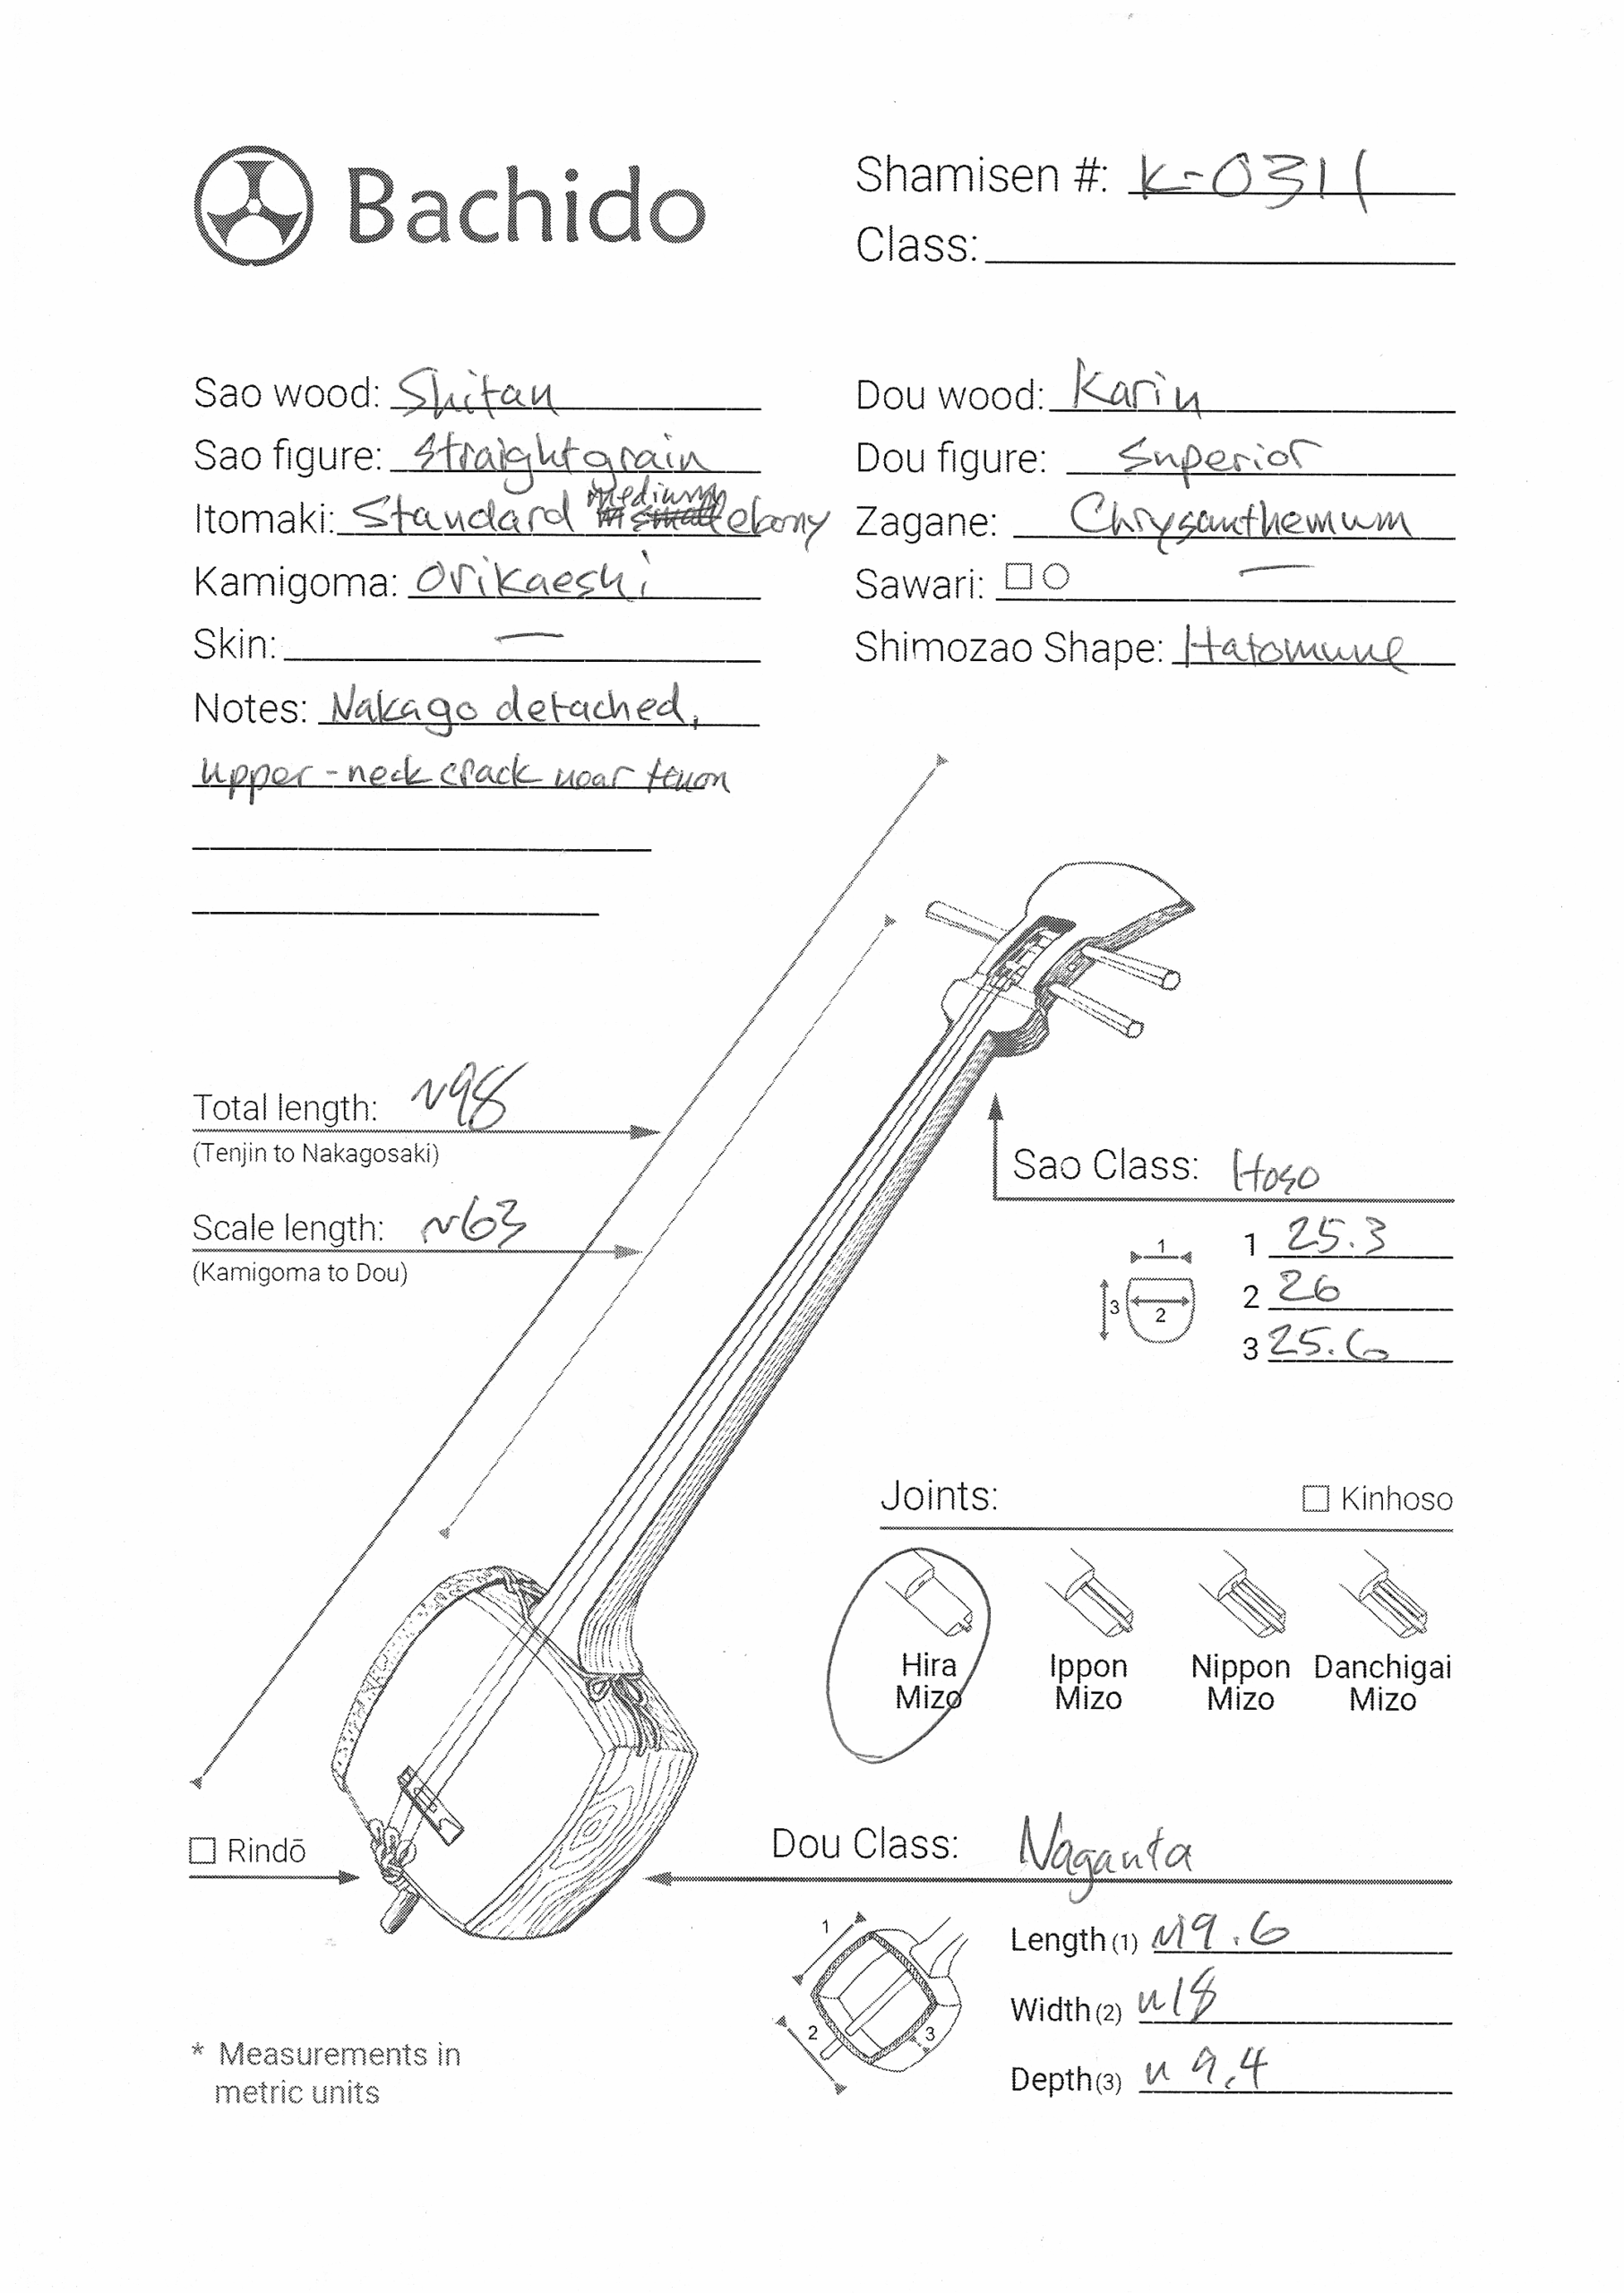 Bachido
Shamisen #: K-0311
Class:
Sao wood: Shitan
Sao figure: Straight grain
Itomaki: Standard medium ebony
Kamigoma: Orikaeshi
Skin: —
Notes: Nakago detached,
upper-neck crack near tenon
Dou wood: Karin
Dou figure: Superior
Zagane: Chrysanthemum
Sawari: □ ○ —
Shimozao Shape: Hatomune
Total length: ~98
(Tenjin to Nakagosaki)
Scale length: ~63
(Kamigoma to Dou)
Sao Class: Hoso
1
3
2
1 25.3
2 26
3 25.6
Joints: □ Kinhoso
Hira Mizo
Ippon Mizo
Nippon Mizo
Danchigai Mizo
□ Rindō
Dou Class: Naganta
1
2
3
Length (1) ~19.6
Width (2) ~18
Depth (3) ~9.4
* Measurements in
metric units